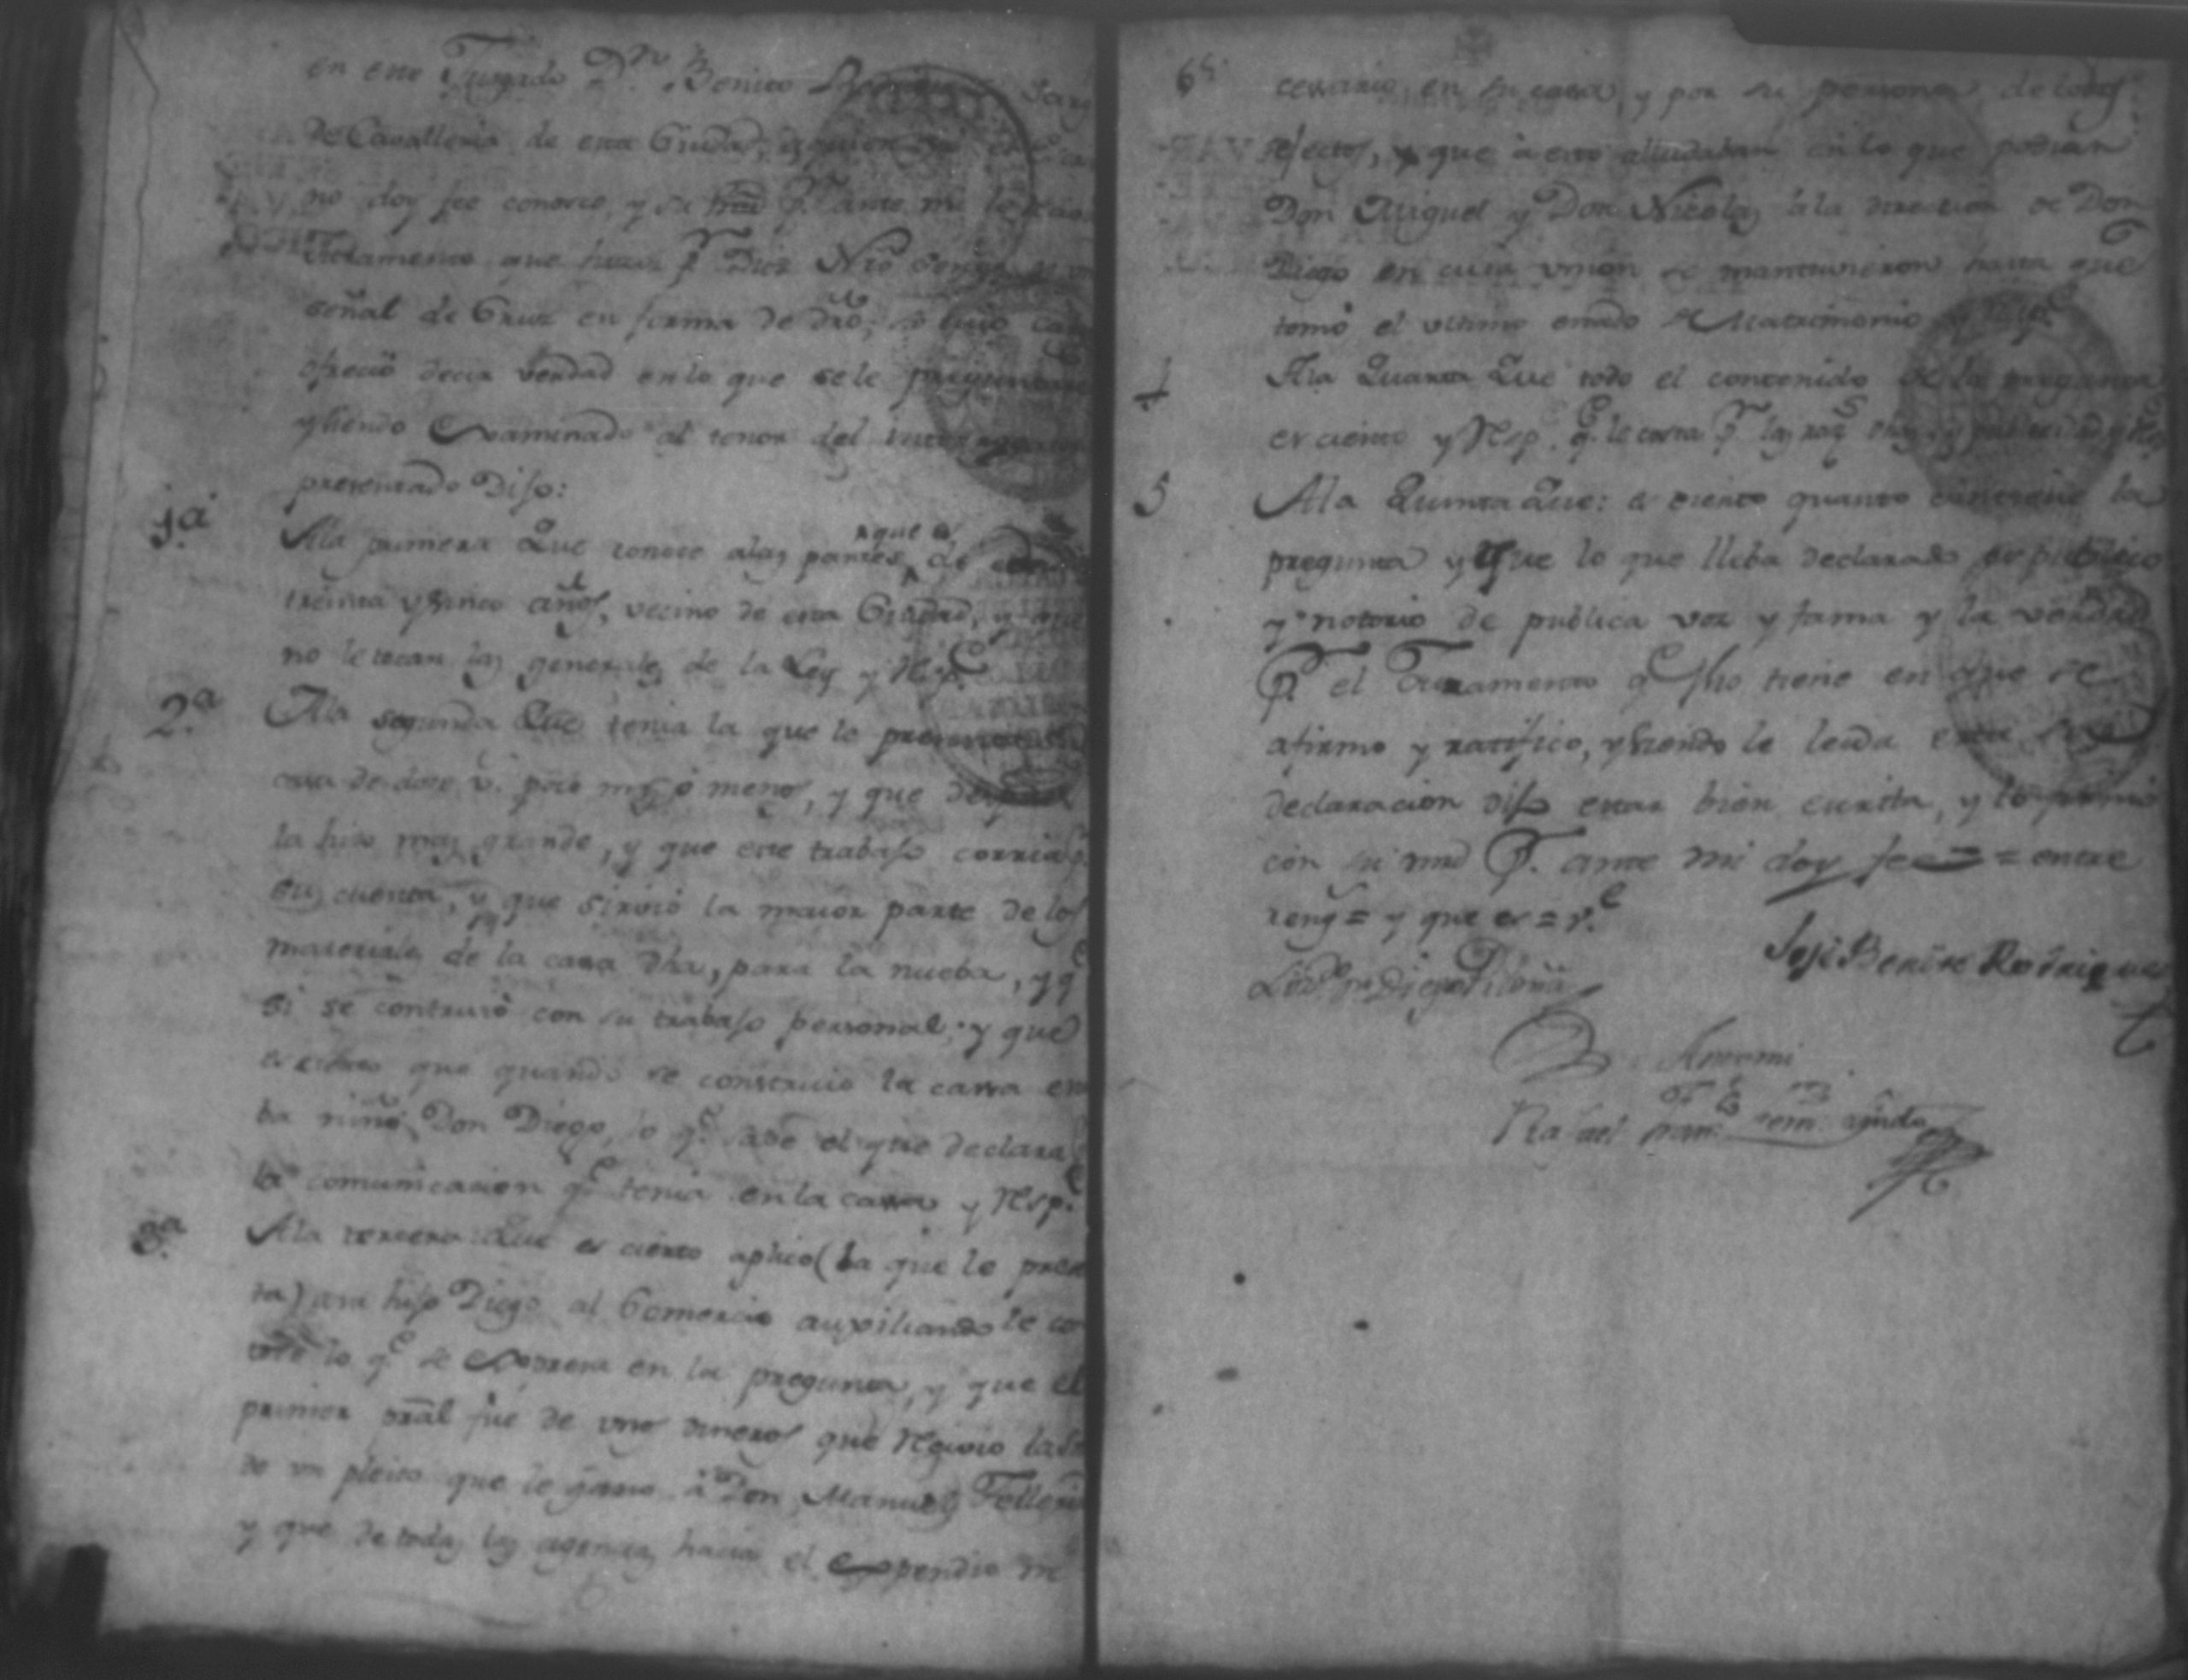 en este Juzgado Dn. Benito
de Cavalleria de esta Ciudad, a quien
no doy fee conosco, y su mrd pr. ante mi le
Juramento que hizo pr. Dios Nro Señor
señal de Cruz en forma de dro,
ofrecio decir verdad en lo que se le preguntare
y siendo Examinado al tenor del interrogatorio
presentado Dijo:
1a. A la primera Que conoce a las partes, y que es de
treinta y cinco años, vecino de esta Ciudad, y que
no le tocan las generales de la Ley y Resp.e
2.a A la segunda Que tenia la que lo presenta
casa de dose v. poco mas o menos, y que despues
la hiso mas grande, y que este trabajo corria
su cuenta, y que sirvio la maior parte de los
materiales de la casa dha, para la nueba, y qe
si se contruio con su trabajo personal; y que
es cierto que quando se construio la casa era
ba niño Don Diego, lo qe. sabe el que declara
la comunicacion qe tenia en la casa y Resp.e
3.a A la tercera Que es cierto aplico (la que lo presen
ta) a su hijo Diego al Comercio auxiliandole co
lo qe se Expresa en la pregunta, y que el
primer pral fue de unos dineros que Recivio la
de un pleito que le gano a Don Manuel Telleria
y que de todas las agencias hacia el Espendio ne
cesario en su casa, y por su persona de todos
efectos, y que a esto alludaban en lo que podian
Don Miguel y Don Nicolas a la direccion de Don
Diego en cuia union se mantuvieron hasta que
tomo el ultimo estado de Matrimonio y Resp.e
4 A la Quarta Que todo el contenido de la pregunta
es cierto y Resp.e qe. le consta pr. las razs
5 A la Quinta Que: es cierto quanto contiene la
pregunta y Que lo que lleba declarado es publico
y notorio de publica voz y fama y la verdad
Pr. el Juramento qe fho tiene en que se
afirmo y ratifico, y siendole leida esta su
declaracion dijo estar bien escrita, y lo firmo
con su md Pr. ante mi doy fee = = entre
reng.s = y que es = v.e
Jose Benito Rodriguez
Ante mi
Rafael